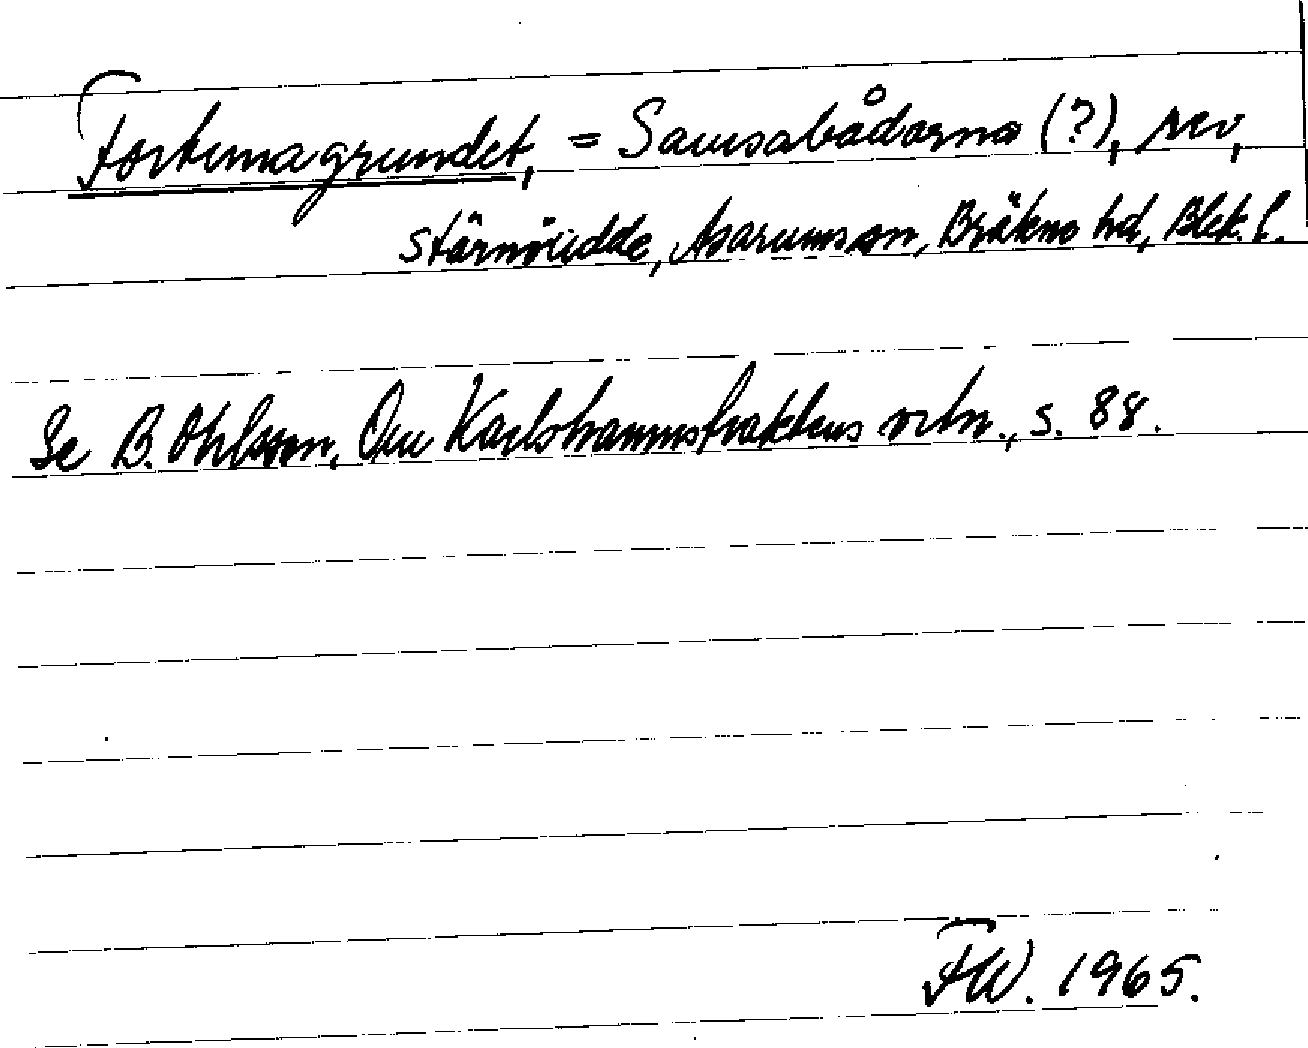 Fortunagrundet, = Samsabådarna (?), rev,
Stärnöudde, Asarums sn, Bräkne hd, Blek. l.
Se B. Ohlsson, Om Karlshamnstraktens ortn., s. 88.
FW. 1965.